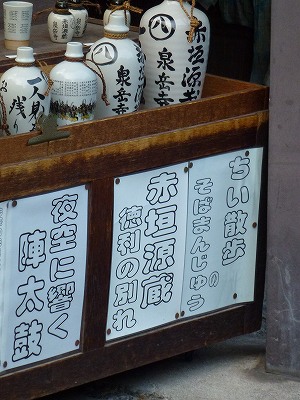 八
泉岳寺
八
泉岳寺
赤垣源蔵
ちい散歩
そばまんじゅう
の
赤垣源蔵
徳利の別れ
夜空に響く
陣太鼓